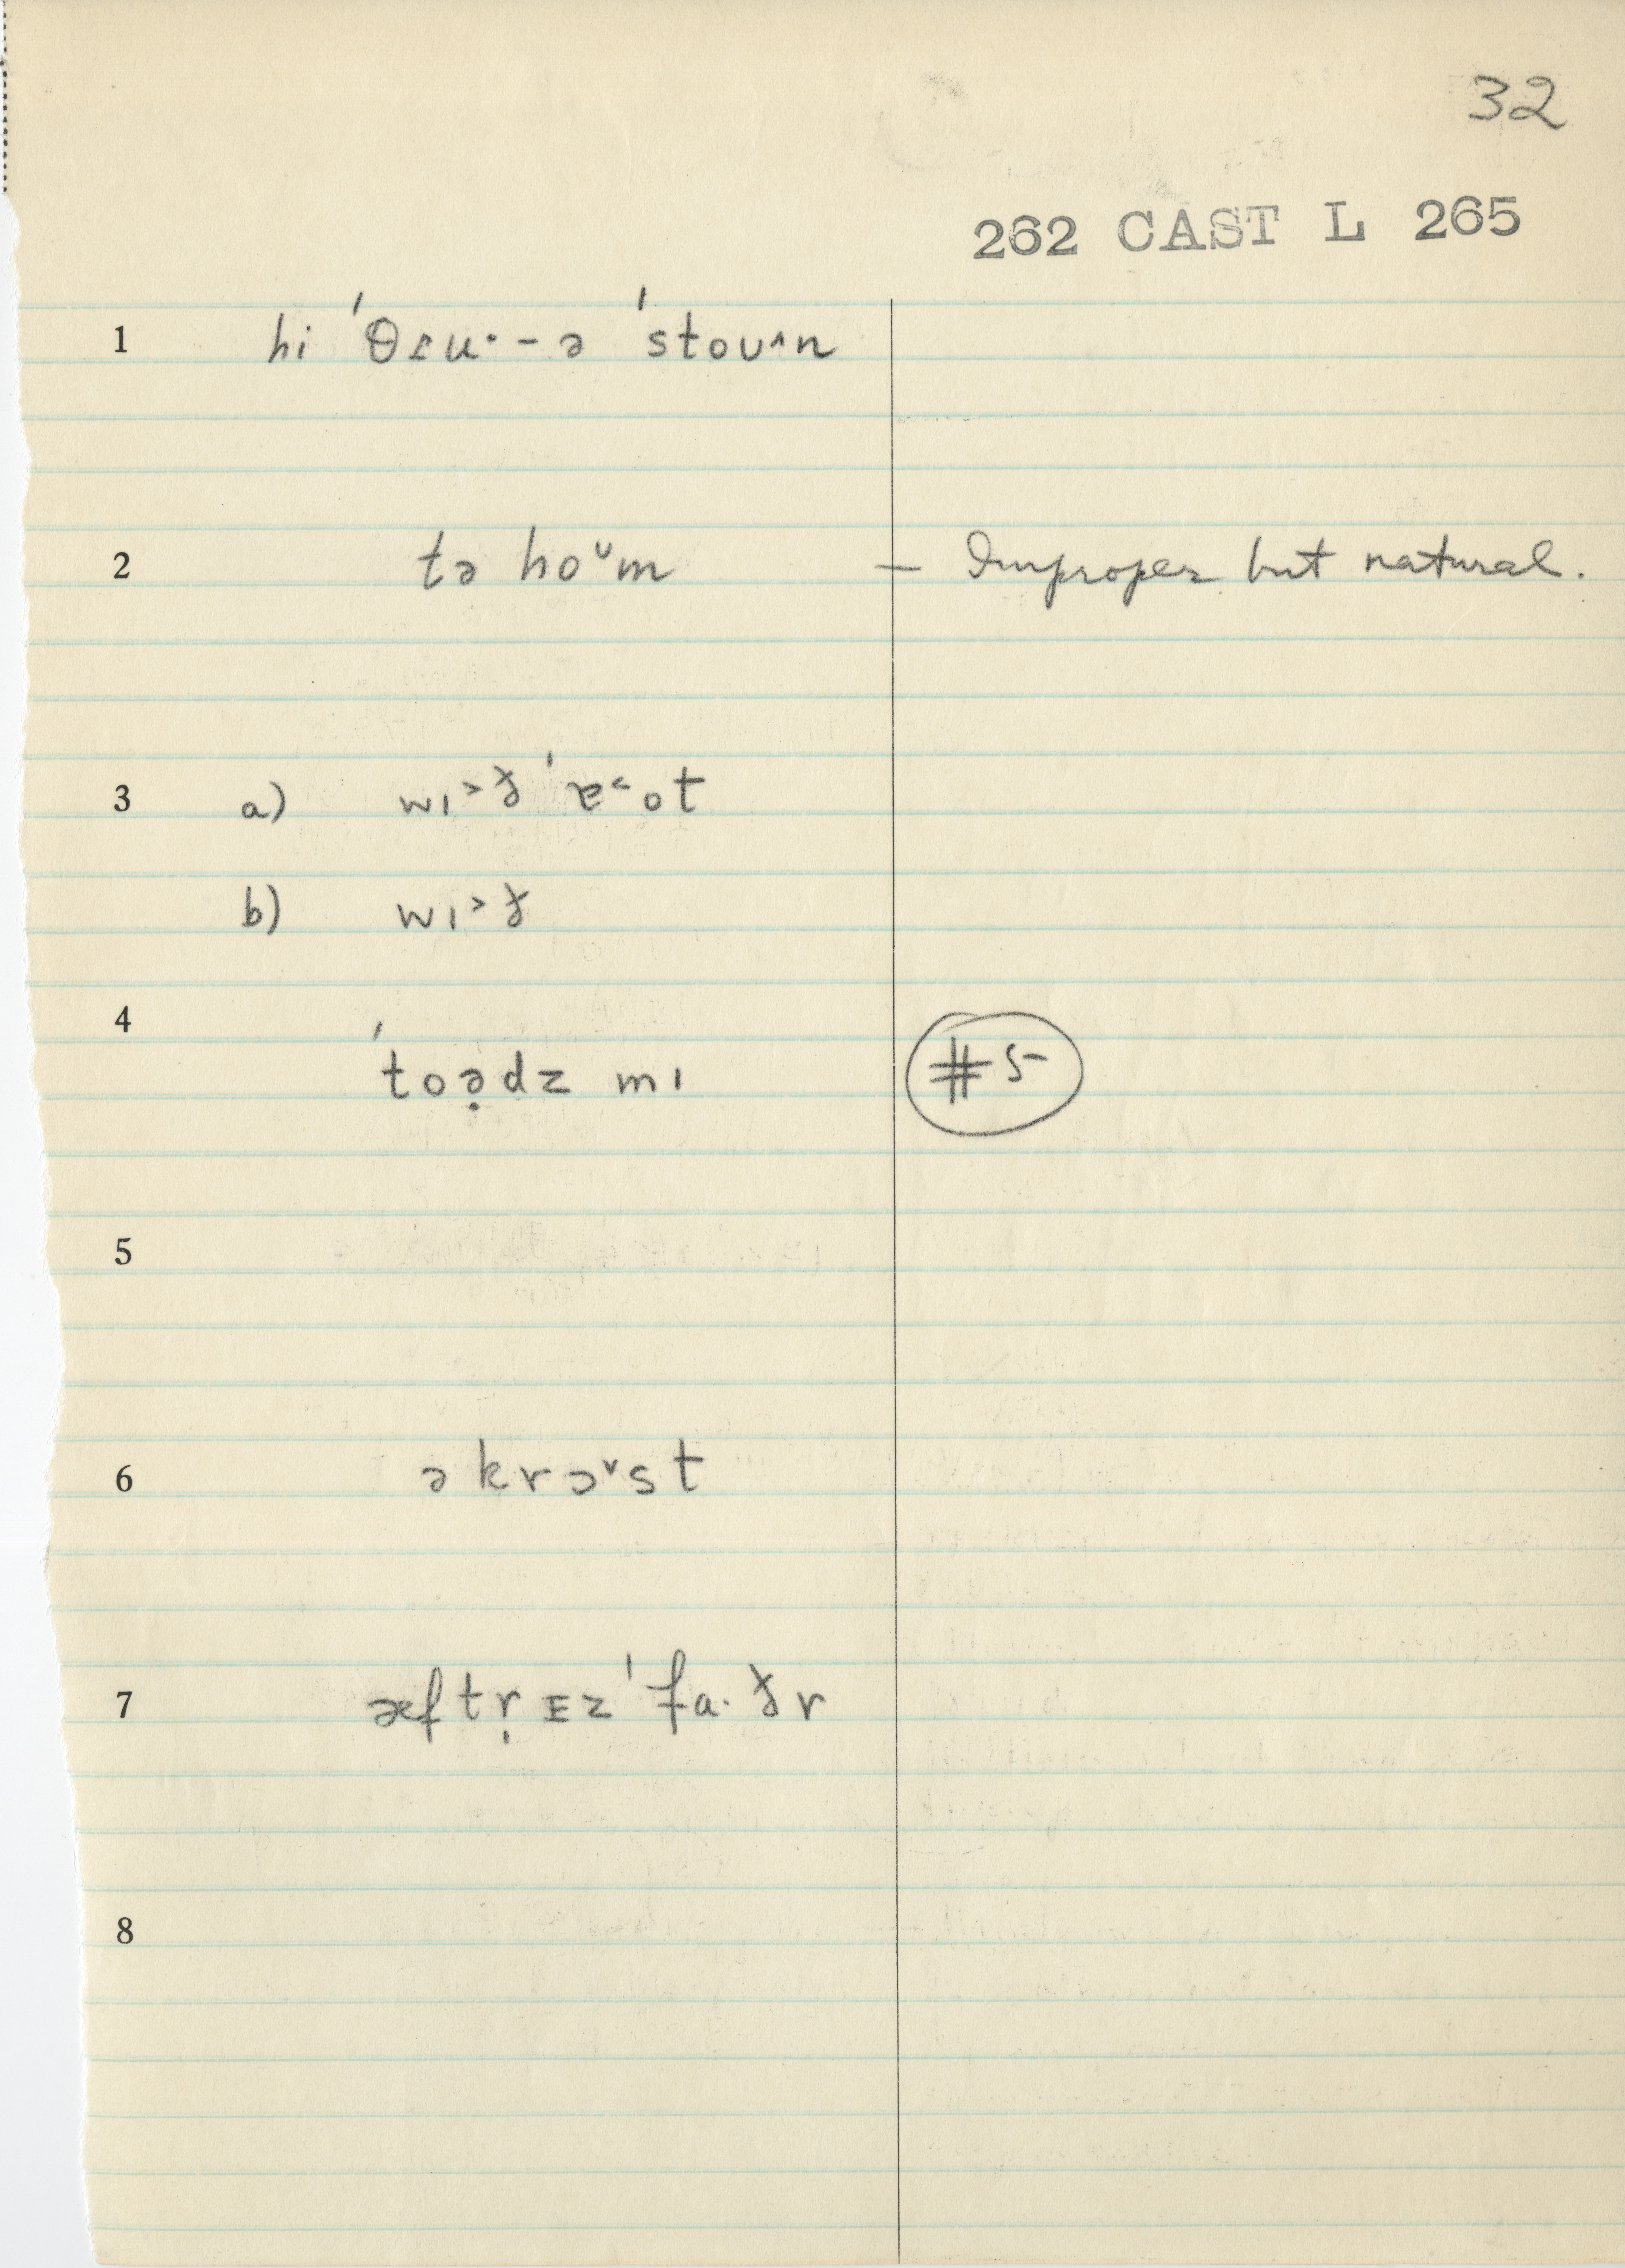 32
262 CAST L 265
1 hi ˈθɪu·-ə ˈstoʊ^n
2 tə hoˇm — Improper but natural.
3 a) wɪ˃ð ˈɐ˂ot
b) wɪ˃ð
4
ˈtoə̣dz mɪ #5
5
6 əkrɔˇst
7 æftr̩ ɪz ˈfa·ðr
8